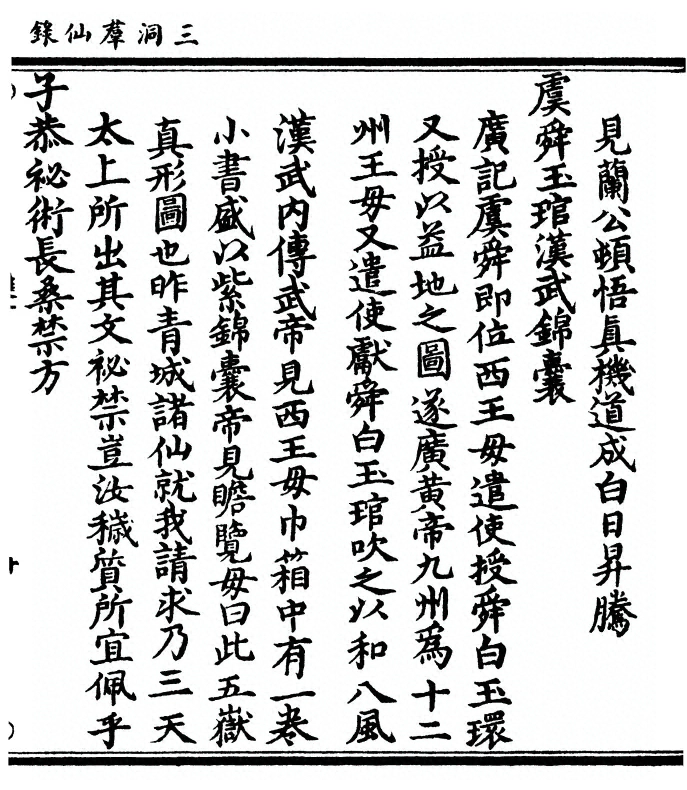 三洞羣仙錄
見蘭公頓悟眞機道成白日昇騰
虞舜玉琯漢武錦囊
廣記虞舜即位西王母遣使授舜白玉環
又授以益地之圖遂廣黃帝九州爲十二
州王母又遣使獻舜白玉琯吹之以和八風
漢武內傳武帝見西王母巾箱中有一卷
小書盛以紫錦囊帝見瞻覽母曰此五嶽
真形圖也昨青城諸仙就我請求乃三天
太上所出其文祕禁豈汝穢質所宜佩乎
子恭祕術長桑禁方